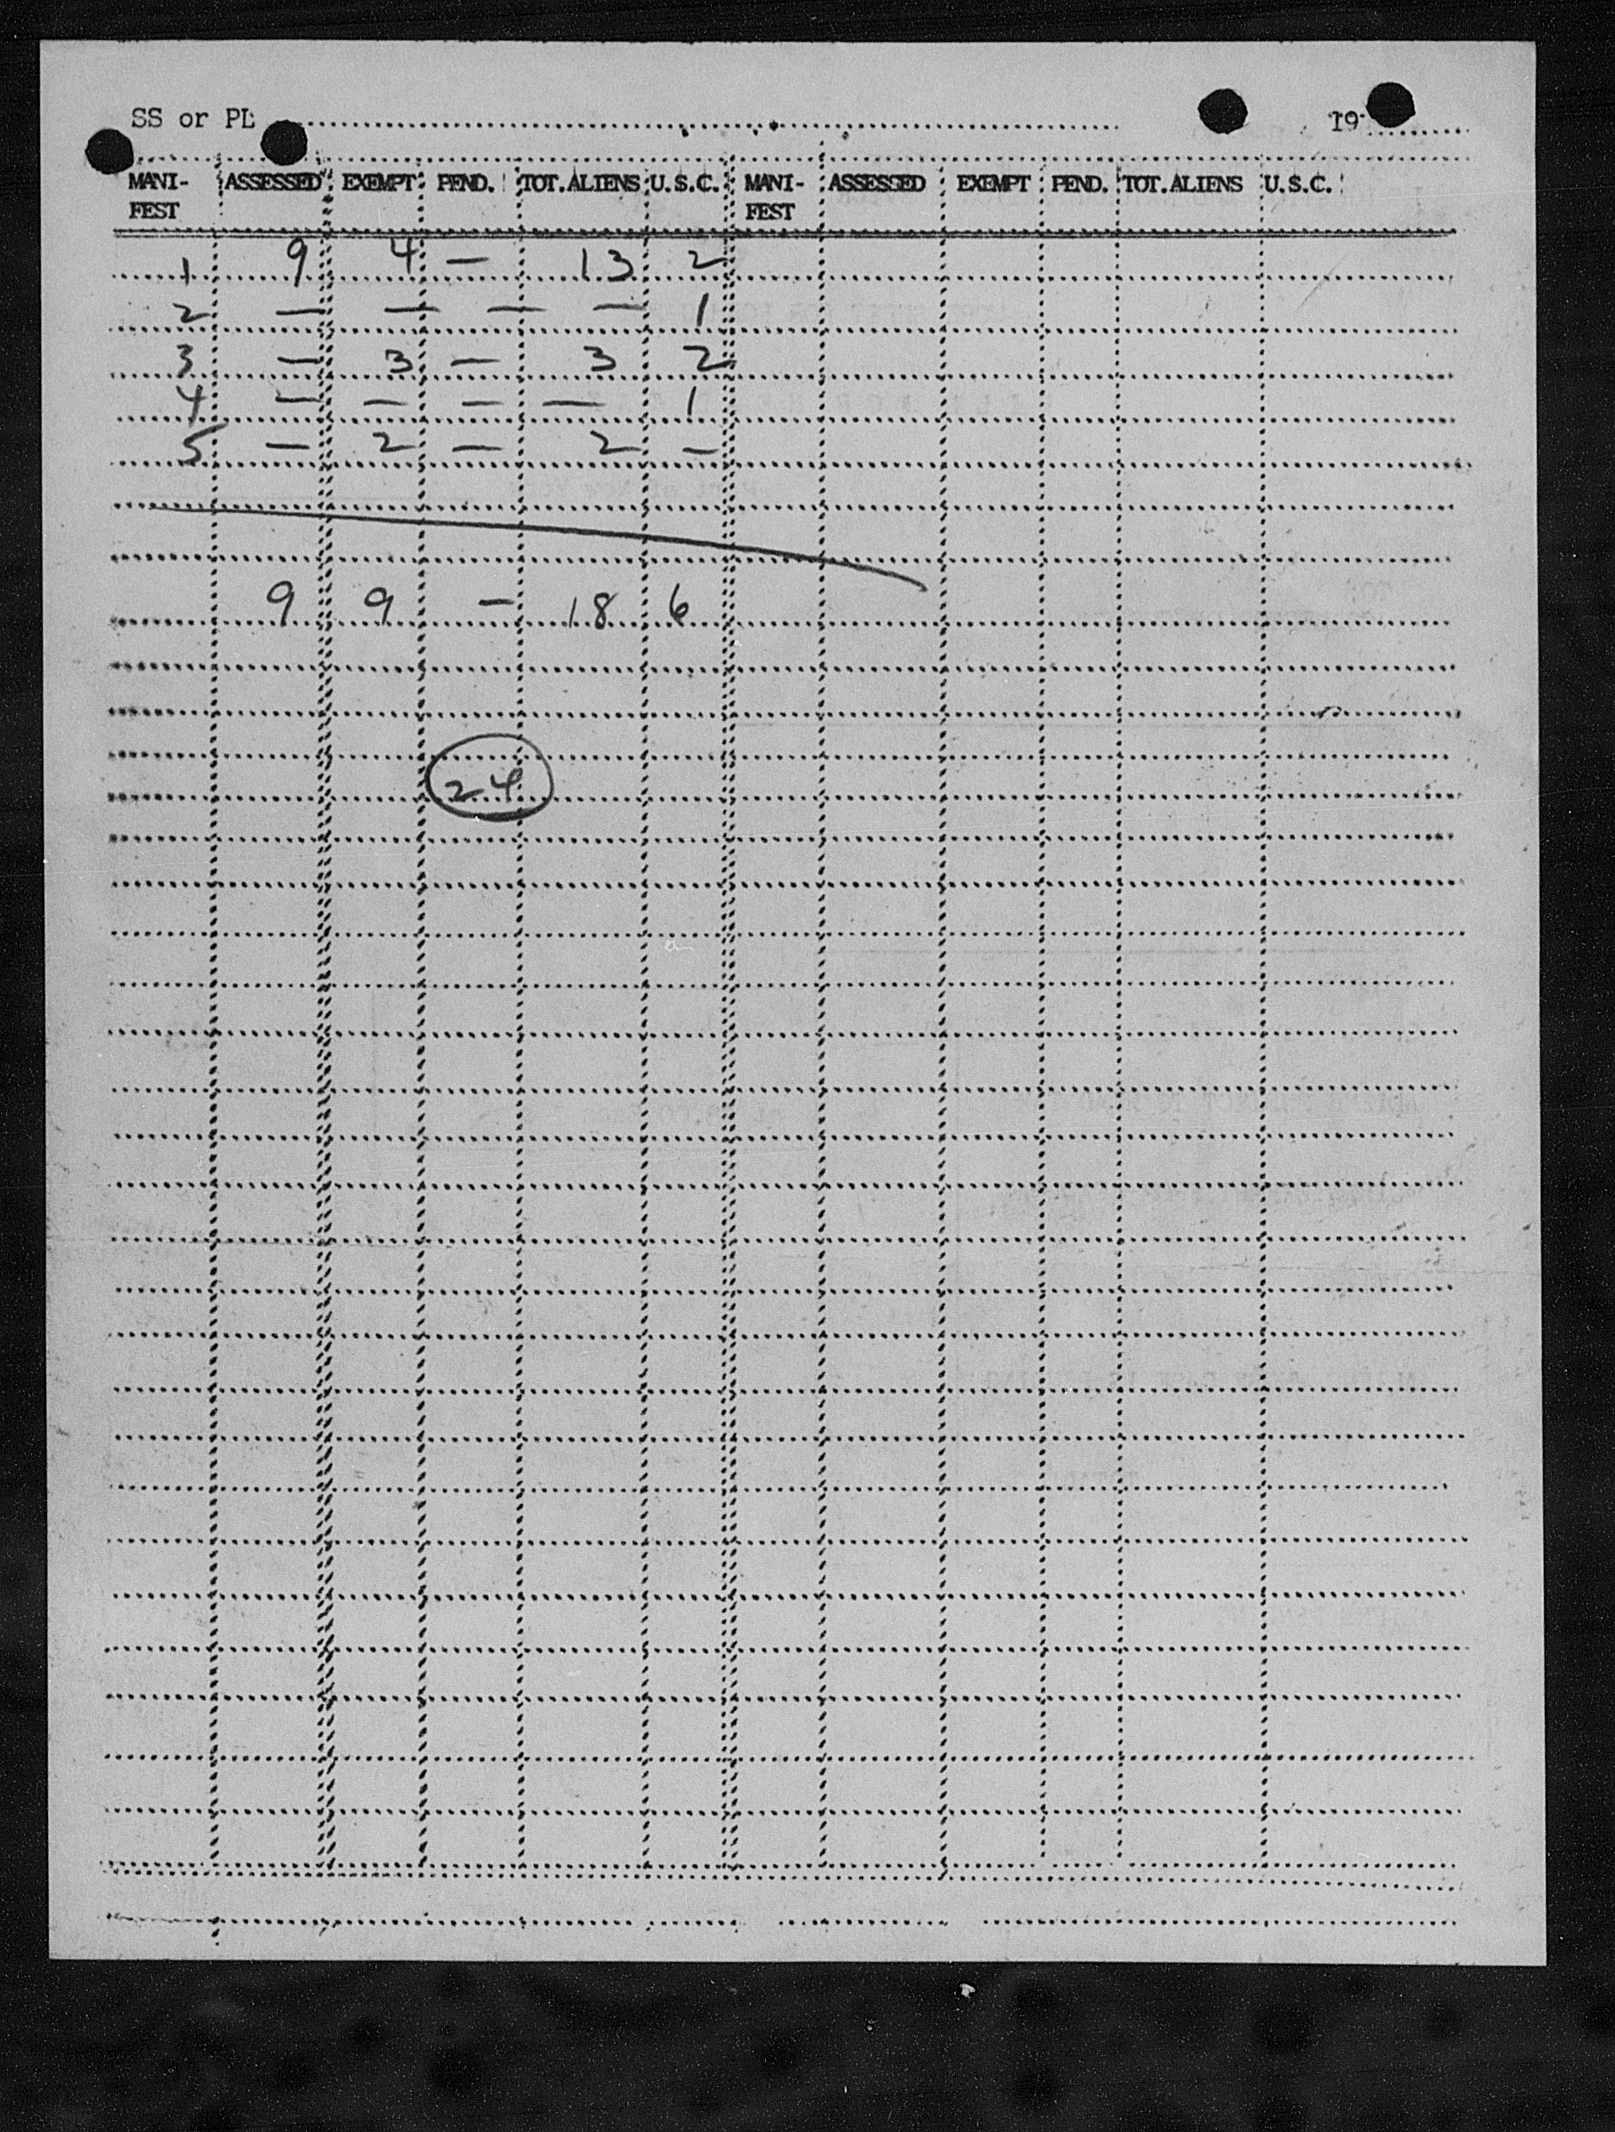 SS or PL 19
MANI-FEST ASSESSED EXEMPT PEND. TOT. ALIENS U.S.C. MANI-FEST ASSESSED EXEMPT PEND. TOT. ALIENS U.S.C.
1 9 4 — 13 2
2 — — — — 1
3 — 3 — 3 2
4 — — — — 1
5 — 2 — 2 —
9 9 — 18 6
24